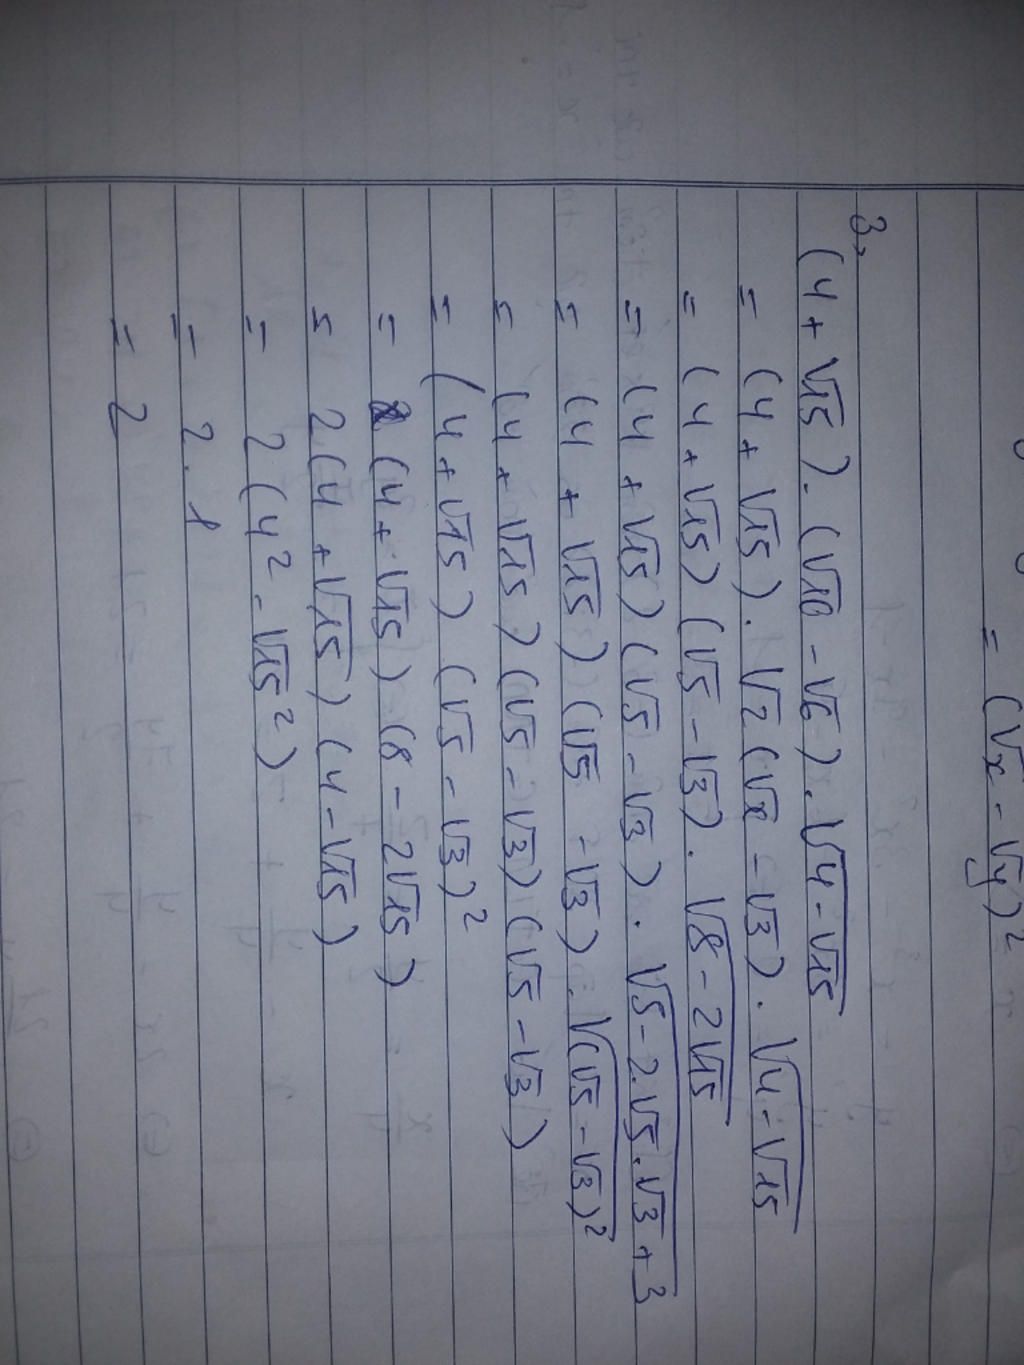 = (√x - √y)²
3,
(4 + √15). (√10 - √6). √(4 - √15)
= (4 + √15). √2 (√5 - √3). √(4 - √15)
= (4 + √15) (√5 - √3). √(8 - 2√15)
= (4 + √15) (√5 - √3). √(5 - 2.√5.√3 + 3)
= (4 + √15) (√5 - √3). √((√5 - √3)²)
= (4 + √15) (√5 - √3) (√5 - √3)
= (4 + √15) (√5 - √3)²
= (4 + √15) (8 - 2√15)
= 2(4 + √15) (4 - √15)
= 2 (4² - √15²)
= 2.1
= 2